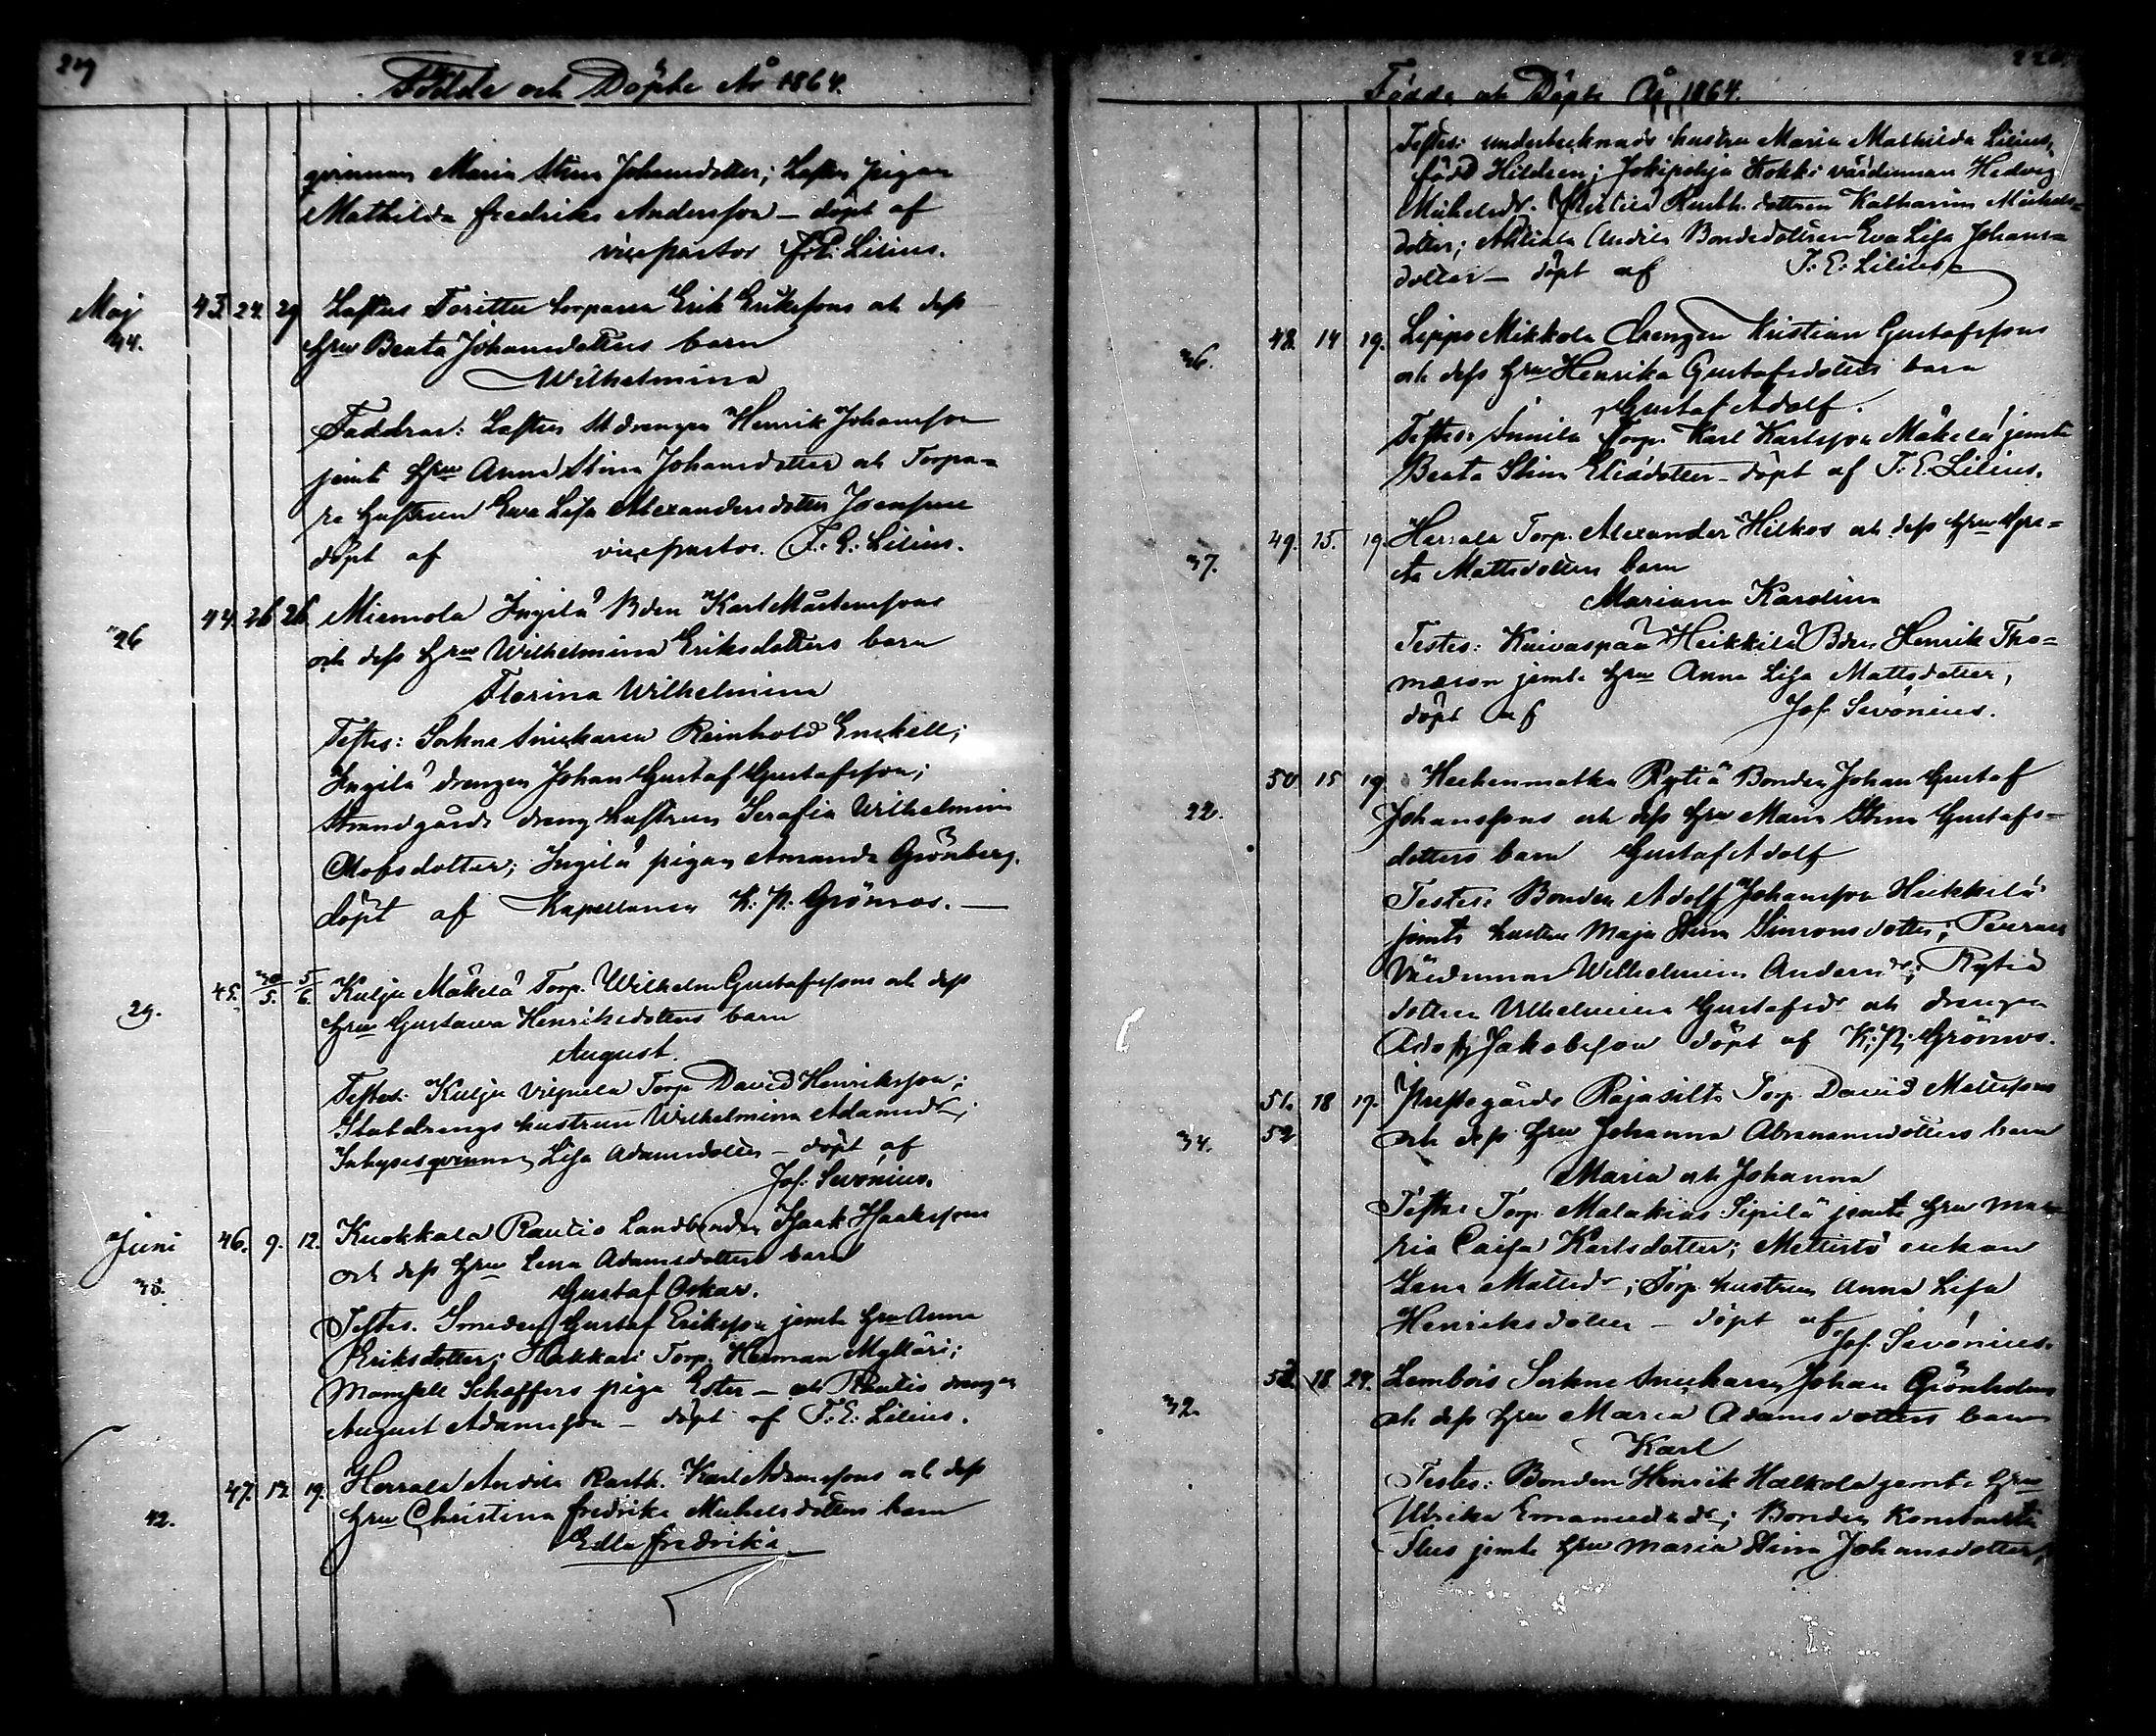 Födde och Döpte År 1864.
qvinnan Maria Stina Johansdotter; Laftis pigan
Mathilda Fredrika Andersson — döpt af
vicepastor F. E. Lilius.
Maj 43. 24. 29 Laftis Torittu torparen Erik Erikssons och dess
34. hru Beata Johansdotters barn
Wilhelmina
Faddrar: Laftis drengen Henrik Johansson
jemte hru Anna Stina Johansdotter och Torpa-
re hustrun Eva Lisa Alexandersdotter
döpt af vicepastor F. E. Lilius.
26 44. 26 26. Miemola Ingilä Bden Karl Mårtenssons
och dess hru Wilhelmina Eriksdotters barn
Florina Wilhelmina
Testes: Sockne snickaren Reinhold Enckell;
Ingilä drengen Johan Gustaf Gustafsson;
Strandgårds dreng hustrun Serafia Wilhelmina
dotter; Ingilä pigan Amanda Grönberg.
döpt af Kapellanen K. P. Grönroos. —
29. 45. 30/5. 5/6 Kulju Mäkelä Torp. Wilhelm Gustafssons och dess
hru Gustava Henriksdotters barn
August.
Testes: Kulju Torp. David Henriksson;
Statdrengs hustrun Wilhelmina Adamsdr;
Inhyses qvinnan Lisa Adamsdotter — döpt af
Jos. Sevonius.
Juni 46. 9. 12. Kuokkala Rautio Landbonden Isaak Isaakssons
38. och dess hru Lena Adamsdotters barn
Gustaf Oskar.
Testes. Smeden Gustaf Eriksson jemte hru Anna
Eriksdotter; Torp. Herman Mylläri;
Mamsell Schæffers piga Ester — och Rautio drengen
August Adamsson — döpt af F. E. Lilius.
47. 12. 19. Herrala Andila Rusth. Karl Adamssons och dess
42. hru Christina Fredrika Michelsdotters barn
Edla Fredrika
Födde och Döpte År 1864.
Testes: undertecknads hustru Maria Mathilda Lilius,
född Hildeen; Jokipohja Kokki värdinnan Hedvig
Michelsdr. Rusth. dottren Katharina Michels-
dotter; Andila Bondedottren Eva Lisa Johans-
dotter — döpt af F. E. Lilius
36. 48. 14 19. Lippo Mikkola drengen Kristian Gustafssons
och dess hru Henrika Gustafsdotters barn
Gustaf Adolf.
Testes: Torp. Karl Karlsson Mäkelä jemte
Beata Stina dotter — döpt af F. E. Lilius.
37. 49. 15. 19. Herrala Torp. Alexander Hilkos och dess hru Gre-
ta Mattsdotters barn
Mariana Karolina
Testes: Kuivaspää Heikkilä Bden Henrik Tho-
masson jemte hru Anna Lisa Mattsdotter,
döpt af Jos. Sevonius.
22. 50 15 19 Rytiä Bonden Johan Gustaf
Johanssons och dess hru Maria Stina Gustafs-
dotters barn Gustaf Adolf
Testes: Bonden Adolf Johansson Heikkilä
jemte hustru Maja Stina Simonsdotter;
Värdinnan Wilhelmina Andersdr; Rytiä
dottren Wilhelmina Gustafsdr och drengen
Adolf Jakobsson döpt af K. P. Grönroos.
51. 18 19. Prestegårds Rajasilta Torp. David Mattssons
34. 52 och dess hru Johanna Abrahamsdotters barn
Maria och Johanna
Testes Torp. Malakias Sipilä jemte hru Ma-
ria Caisa Karlsdotter; enkan
Lena Mattsdr; Torp. hustrun Anna Lisa
Henriksdotter — döpt af
Jos. Sevonius.
32. 53. 18 24. Lembois Sockne Snickaren Johan Grönholms
och dess hru Maria Adamsdotters barn
Karl
Testes: Bonden Henrik jemte hru
Ulrika Emanuelsdr; Bonden Konstantin
jemte hru Maria Stina Johansdotter,